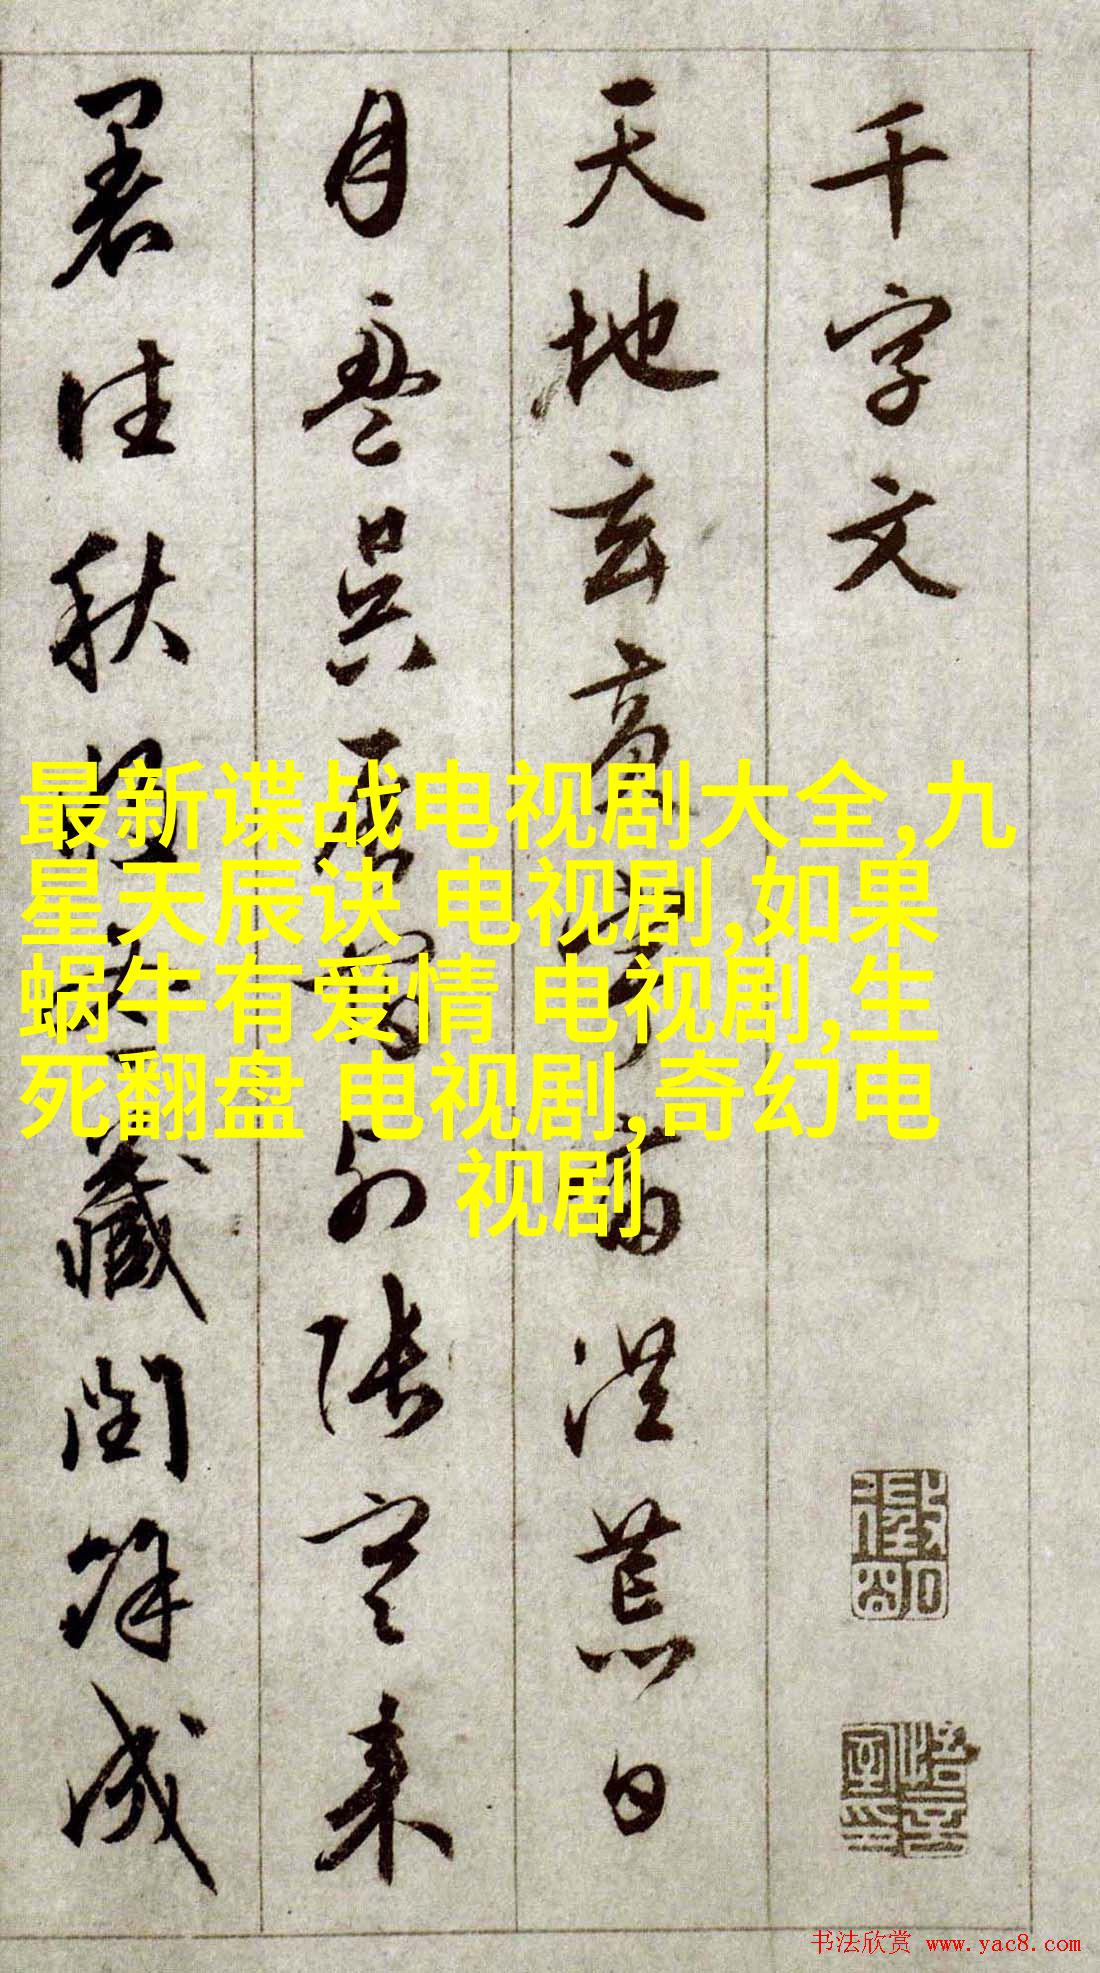 千字文
天地玄黃宇宙洪荒日
月盈昃辰宿列張寒來
暑往秋收冬藏閏餘成
最新谍战电视剧大全,九
星天辰诀 电视剧,如果
蜗牛有爱情 电视剧,生
死翻盘 电视剧,奇幻电
视剧
书法欣赏 www.yac8.com